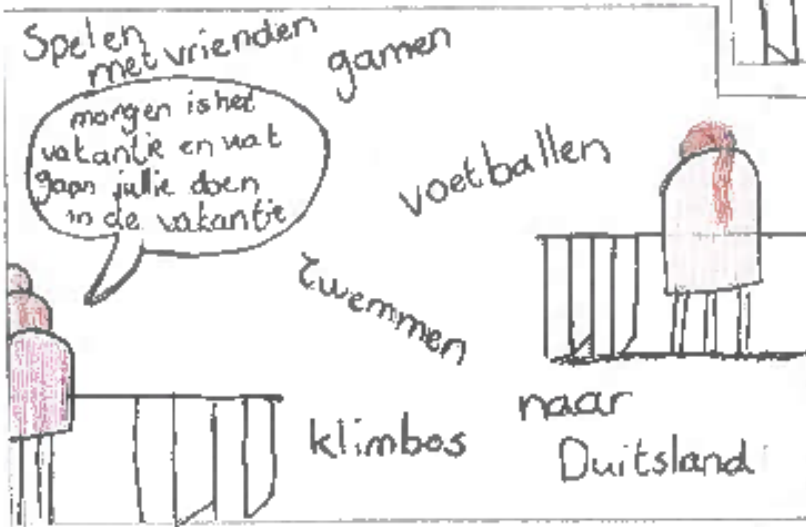 Spelen
met vrienden
gamen
morgen is het
vakantie en wat
gaan jullie doen
in de vakantie
voetballen
zwemmen
klimbos
naar
Duitsland